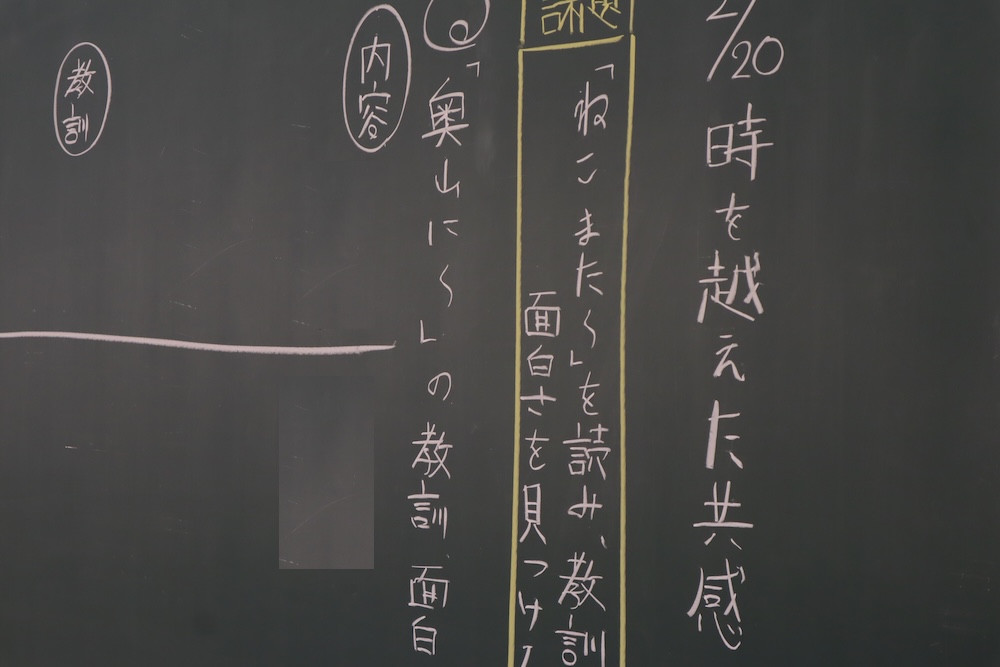 2/20 時を越えた共感
課題
「ねこまた〜」を読み、教訓
面白さを見つける
「奥山に〜」の教訓、面白
内容
教訓